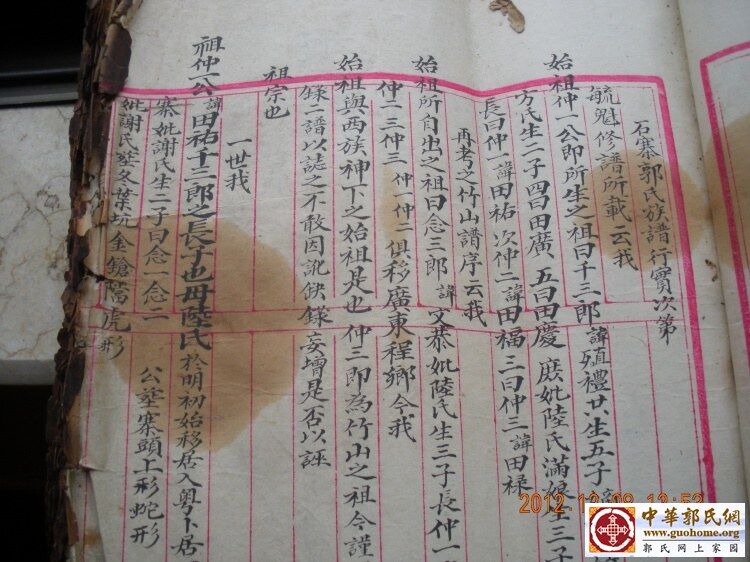 石寨郭氏族譜行實次第
毓魁修譜所載云我
始祖仲一公即所生之祖曰十三郎 諱殖禮共生五子
方氏生二子四曰田廣 五曰田慶 庶妣陸氏滿娘生三子
長曰仲一 諱田祐 次仲二 諱田福 三曰仲三 諱田禄
再考之竹山譜序云我
始祖所自出之祖曰念三郎 諱文恭妣陸氏生三子長仲一
仲二仲三 仲一仲二俱移廣東程鄉今我
始祖與西族神下之始祖是也 仲三即為竹山之祖今謹
錄二譜以誌之不敢因訛缺錄妄增是否以誣
祖宗也
一世我
祖仲一公 諱田祐十三郎之長子也母陸氏 於明初始移居入粤卜居
寨妣謝氏生二子曰念一念二 公塟寨頭上形蛇形
妣謝氏塟冬葉坑金鎗 虎形
2012 12 09 13:52
中華郭氏網
www.guohome.org
郭氏网上家园